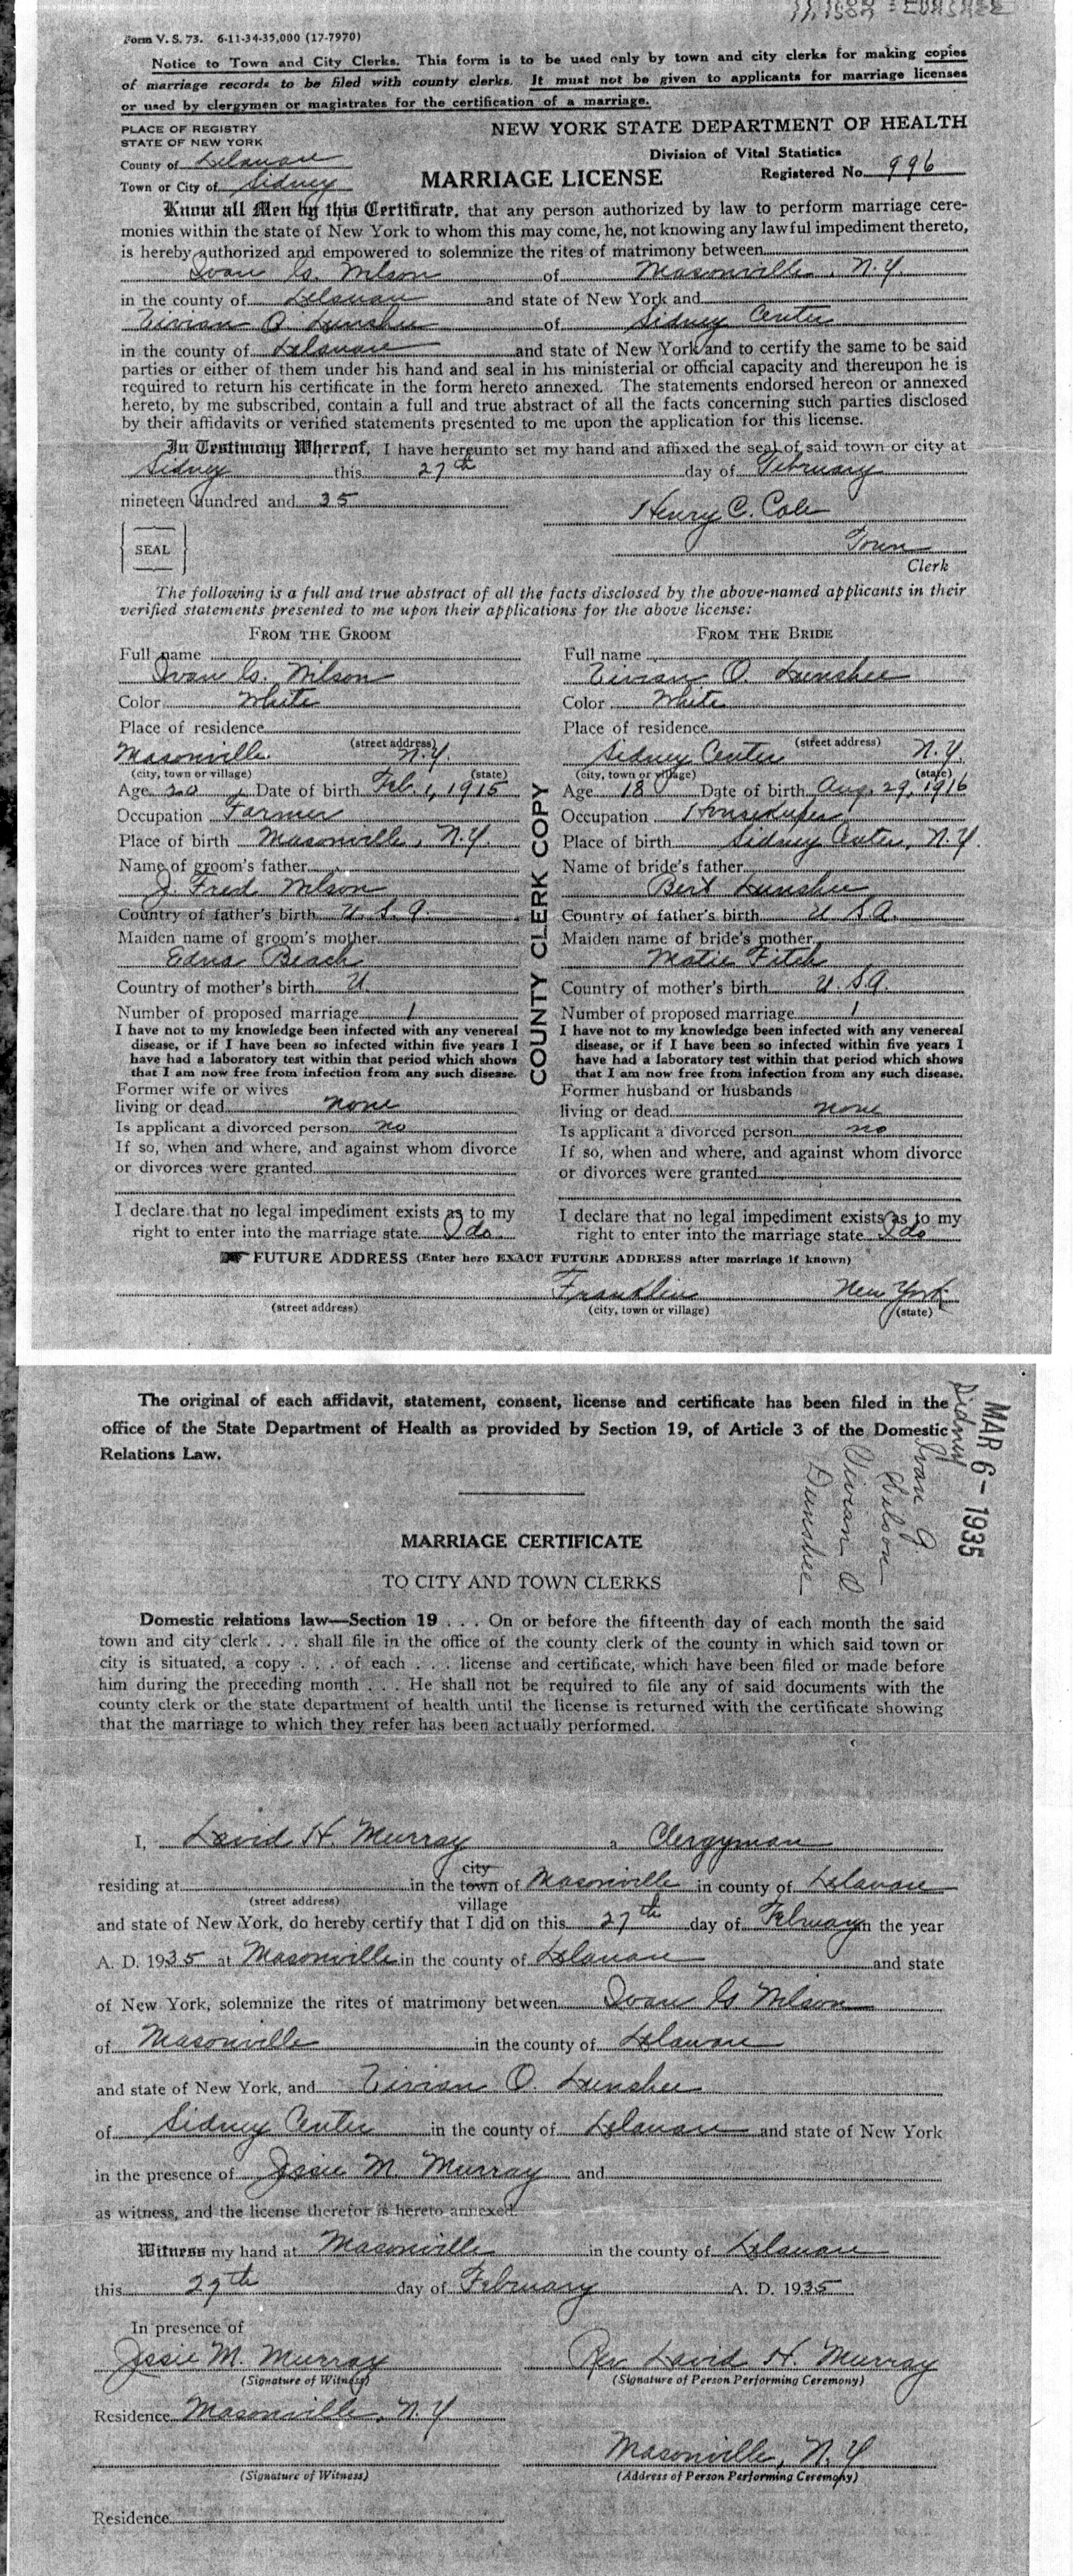 WILSON - DUNSHEE
Form V. S. 73. 6-11-34-35,000 (17-7970)
Notice to Town and City Clerks. This form is to be used only by town and city clerks for making copies
of marriage records to be filed with county clerks. It must not be given to applicants for marriage licenses
or used by clergymen or magistrates for the certification of a marriage.
PLACE OF REGISTRY
STATE OF NEW YORK
NEW YORK STATE DEPARTMENT OF HEALTH
Division of Vital Statistics
County of Delaware
Town or City of Sidney
MARRIAGE LICENSE
Registered No. 996
Know all Men by this Certificate, that any person authorized by law to perform marriage cere-
monies within the state of New York to whom this may come, he, not knowing any lawful impediment thereto,
is hereby authorized and empowered to solemnize the rites of matrimony between
Ivan G. Wilson of Masonville, N.Y.
in the county of Delaware and state of New York and
Vivian O. Dunshee of Sidney Center
in the county of Delaware and state of New York and to certify the same to be said
parties or either of them under his hand and seal in his ministerial or official capacity and thereupon he is
required to return his certificate in the form hereto annexed. The statements endorsed hereon or annexed
hereto, by me subscribed, contain a full and true abstract of all the facts concerning such parties disclosed
by their affidavits or verified statements presented to me upon the application for this license.
In Testimony Whereof, I have hereunto set my hand and affixed the seal of said town or city at
Sidney this 27th day of February
nineteen hundred and 35
Henry C. Cole
SEAL
Town
Clerk
The following is a full and true abstract of all the facts disclosed by the above-named applicants in their
verified statements presented to me upon their applications for the above license:
FROM THE GROOM
Full name
Ivan G. Wilson
Color White
Place of residence
(street address)
Masonville. N.Y.
(city, town or village) (state)
Age 20 Date of birth Feb. 1, 1915
Occupation Farmer
Place of birth Masonville, N.Y.
Name of groom's father
J. Fred Wilson
Country of father's birth U.S.A.
Maiden name of groom's mother
Edna Beach
Country of mother's birth U.
Number of proposed marriage 1
I have not to my knowledge been infected with any venereal
disease, or if I have been so infected within five years I
have had a laboratory test within that period which shows
that I am now free from infection from any such disease.
Former wife or wives
living or dead none
Is applicant a divorced person no
If so, when and where, and against whom divorce
or divorces were granted
I declare that no legal impediment exists as to my
right to enter into the marriage state I do.
COUNTY CLERK COPY
FROM THE BRIDE
Full name
Vivian O. Dunshee
Color White
Place of residence
(street address)
Sidney Center N.Y.
(city, town or village) (state)
Age 18 Date of birth Aug. 29, 1916
Occupation Housekeeper
Place of birth Sidney Center, N.Y.
Name of bride's father
Bert Dunshee
Country of father's birth U.S.A.
Maiden name of bride's mother
Matie Fitch
Country of mother's birth U.S.A.
Number of proposed marriage 1
I have not to my knowledge been infected with any venereal
disease, or if I have been so infected within five years I
have had a laboratory test within that period which shows
that I am now free from infection from any such disease.
Former husband or husbands
living or dead none
Is applicant a divorced person no
If so, when and where, and against whom divorce
or divorces were granted
I declare that no legal impediment exists as to my
right to enter into the marriage state I do
FUTURE ADDRESS (Enter here EXACT FUTURE ADDRESS after marriage if known)
Franklin New York
(street address) (city, town or village) (state)
The original of each affidavit, statement, consent, license and certificate has been filed in the
office of the State Department of Health as provided by Section 19, of Article 3 of the Domestic
Relations Law.
MAR 6 - 1935
Sidney
Ivan G.
Wilson
Vivian O
Dunshee
MARRIAGE CERTIFICATE
TO CITY AND TOWN CLERKS
Domestic relations law—Section 19 . . . On or before the fifteenth day of each month the said
town and city clerk . . . shall file in the office of the county clerk of the county in which said town or
city is situated, a copy . . . of each . . . license and certificate, which have been filed or made before
him during the preceding month . . . He shall not be required to file any of said documents with the
county clerk or the state department of health until the license is returned with the certificate showing
that the marriage to which they refer has been actually performed.
I, David H. Murray a Clergyman
city
residing at in the town of Masonville in county of Delaware
(street address) village
and state of New York, do hereby certify that I did on this 27th day of February in the year
A. D. 1935 at Masonville in the county of Delaware and state
of New York, solemnize the rites of matrimony between Ivan G. Wilson
of Masonville in the county of Delaware
and state of New York, and Vivian O. Dunshee
of Sidney Center in the county of Delaware and state of New York
in the presence of Jessie M. Murray and
as witness, and the license therefor is hereto annexed.
Witness my hand at Masonville in the county of Delaware
this 27th day of February A. D. 1935
In presence of
Jessie M. Murray Rev. David H. Murray
(Signature of Witness) (Signature of Person Performing Ceremony)
Residence Masonville, N.Y
Masonville, N.Y
(Signature of Witness) (Address of Person Performing Ceremony)
Residence